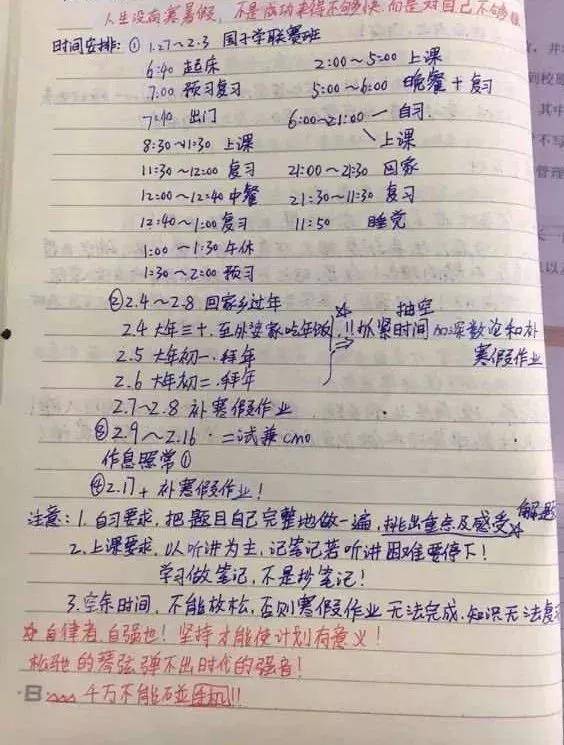 人生没有寒暑假，不是成功来得不够快，而是对自己不够狠
时间安排：① 1.27～2.3 国子学联赛班
6:40 起床 2:00～5:00 上课
7:00 预习复习 5:00～6:00 晚餐＋复习
7:40 出门 6:00～21:00 — 自习.
8:30～11:30 上课 ＼上课
11:30～12:00 复习 21:00～21:30 回家
12:00～12:40 中餐 21:30～11:30 复习
12:40～1:00 复习 11:50 睡觉
1:00～1:30 午休
1:30～2:00 预习
② 2.4～2.8 回家乡过年 ☆ 抽空
2.4 大年三十．至外婆家吃年饭 !! 抓紧时间加深数论和补
2.5 大年初一．拜年 寒假作业
2.6 大年初二．拜年
2.7～2.8 补寒假作业
③ 2.9～2.16 · 二试兼CMO
作息照常①
④ 2.17＋ 补寒假作业！
注意：1. 自习要求，把题目自己完整地做一遍，挑出重点及感受☆解题
2. 上课要求，以听讲为主，记笔记若听讲困难要停下！
学习做笔记，不是抄笔记！
3. 空余时间，不能放松，否则寒假作业无法完成，知识无法复
☆ 自律者，自强也！坚持才能使计划有意义！
松弛的琴弦弹不出时代的强音！
千万不能碰手机!!
并
到校
其中
不写
管理
以